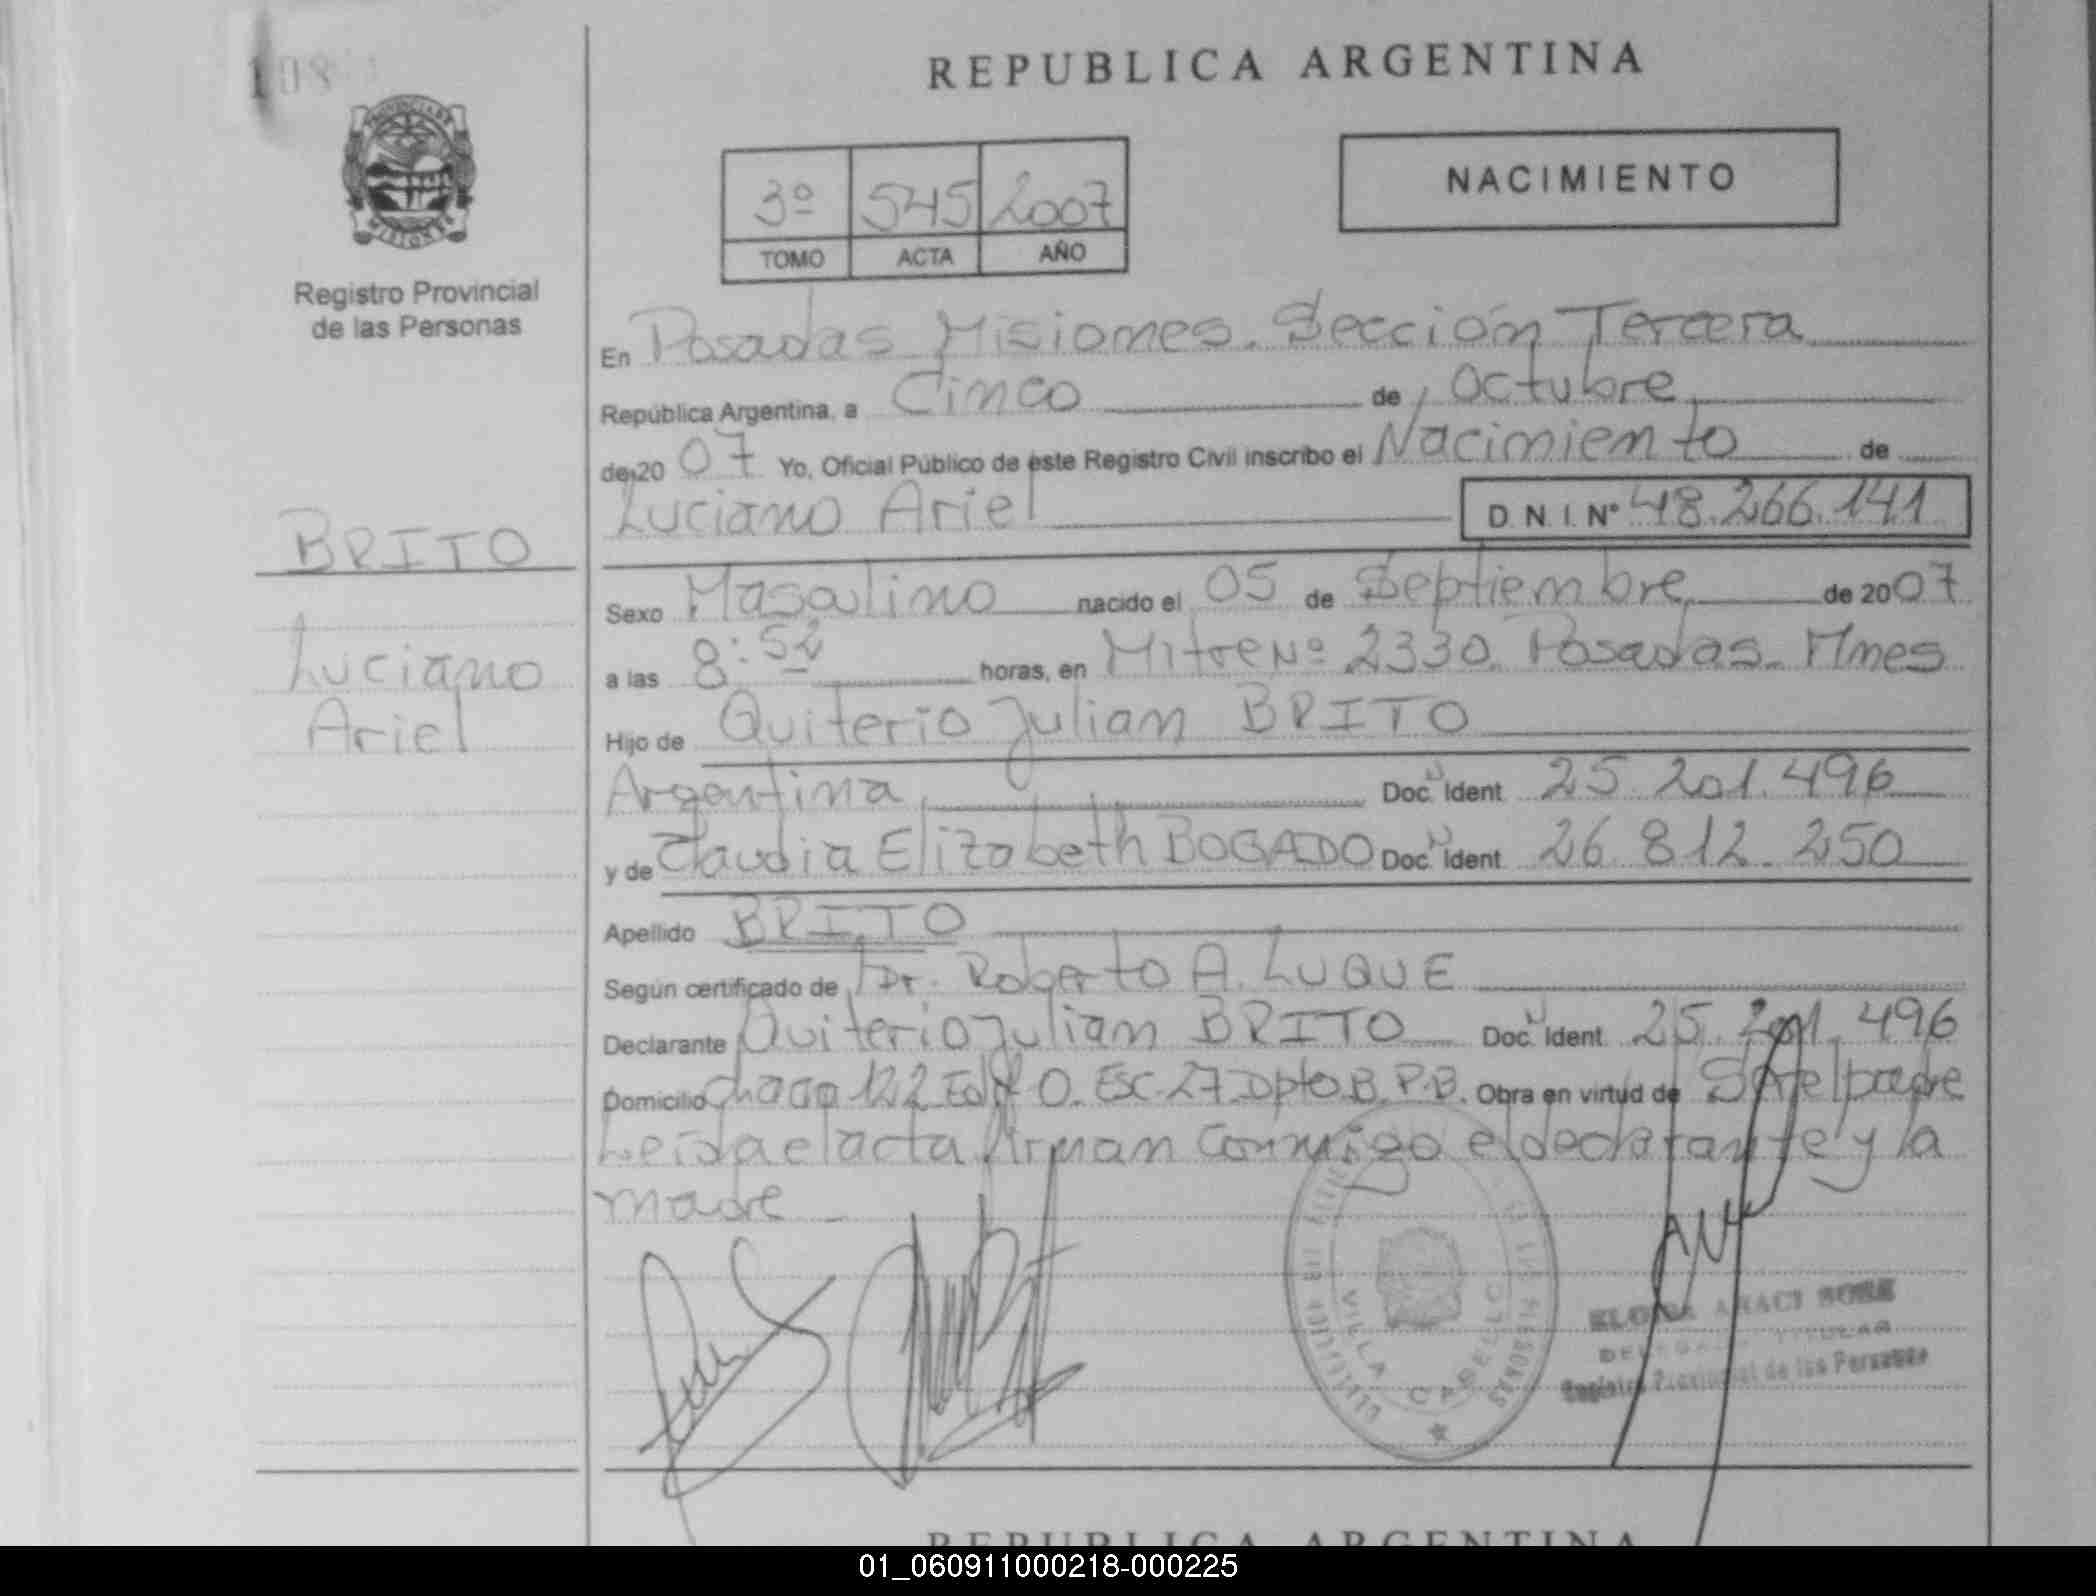 108
REPUBLICA ARGENTINA
PROVINCIA DE
MISIONES
Registro Provincial
de las Personas
3º 545 2007
TOMO ACTA AÑO
NACIMIENTO
En Posadas Misiones. Sección Tercera
República Argentina, a Cinco de Octubre
de 20 07 Yo, Oficial Público de este Registro Civil inscribo el Nacimiento de
Luciano Ariel D.N.I. Nº 48.266.141
BRITO
Luciano
Ariel
Sexo Masculino nacido el 05 de Septiembre de 2007
a las 8:52 horas, en Mitre Nº 2330. Posadas. Mnes
Hijo de Quiterio Julian BRITO
Argentina Doc. Ident. 25.201.496
y de Claudia Elizabeth BOGADO Doc. Ident. 26.812.250
Apellido BRITO
Según certificado de Dr. Roberto A. LUQUE
Declarante Quiterio Julian BRITO Doc. Ident. 25.201.496
Domicilio Chaca 122 Edif O. Esc. 27. Dpto B. P.B. Obra en virtud de Ser el padre
Leida el acta firman conmigo el declarante y la
madre
VILLA CABELLO
DE LAS PERSONAS
ARACI
DELEGADA TITULAR
Registro Provincial de las Personas
REPUBLICA ARGENTINA
01_060911000218-000225